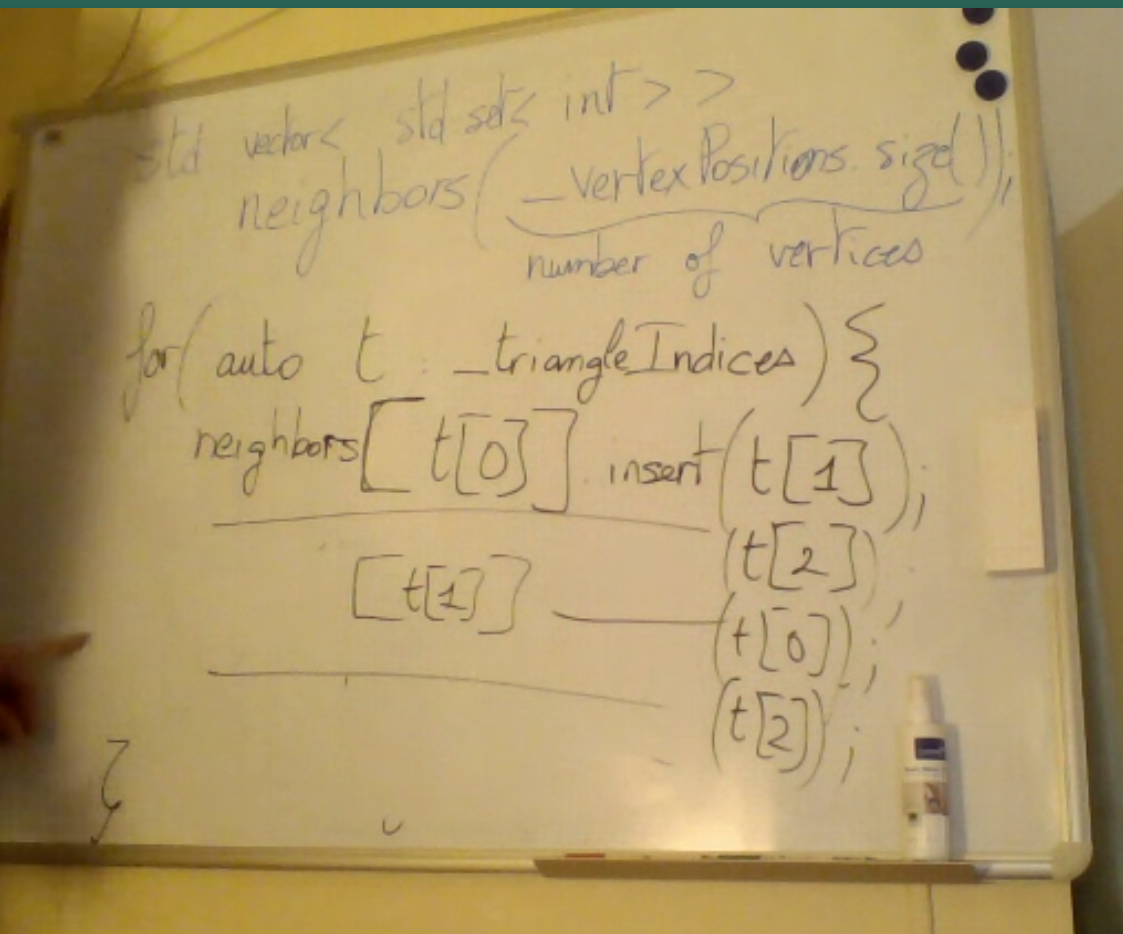 std vector< std set< int > >
neighbors( _vertexPositions.size());
number of vertices
for( auto t : _triangleIndices) {
neighbors[ t[0] ].insert(t[1]);
(t[2]);
[t[1]] (t[0]);
(t[2]);
}